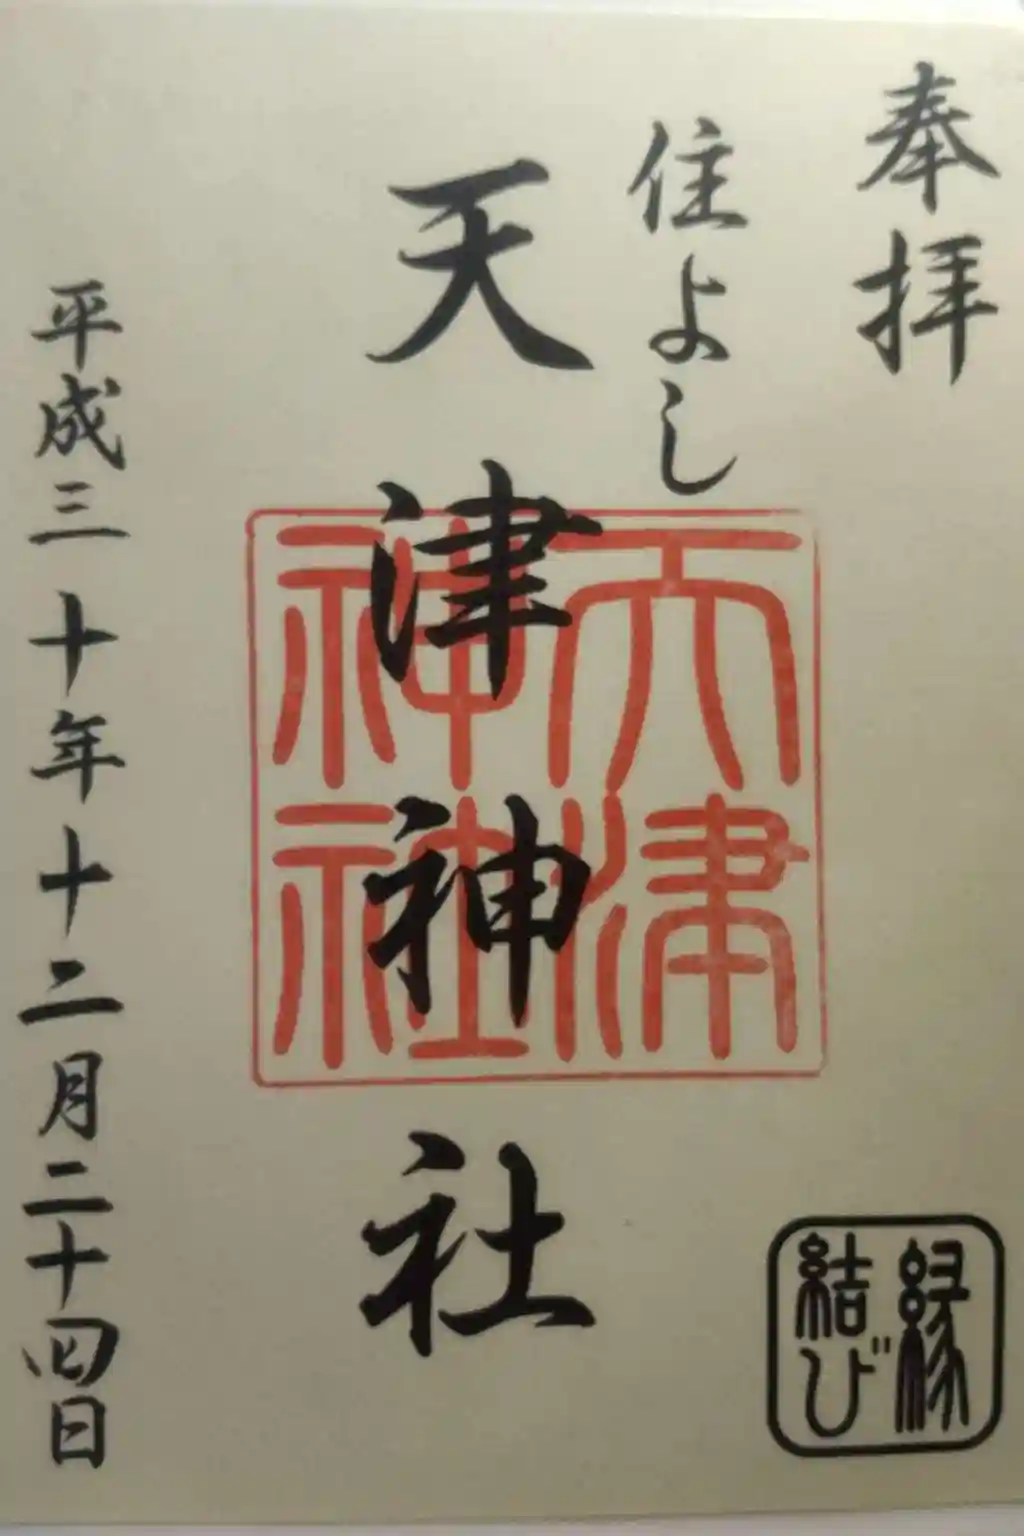 奉拝
住よし
天津神社
天津
神社
平成三十年十二月二十四日
縁
結び